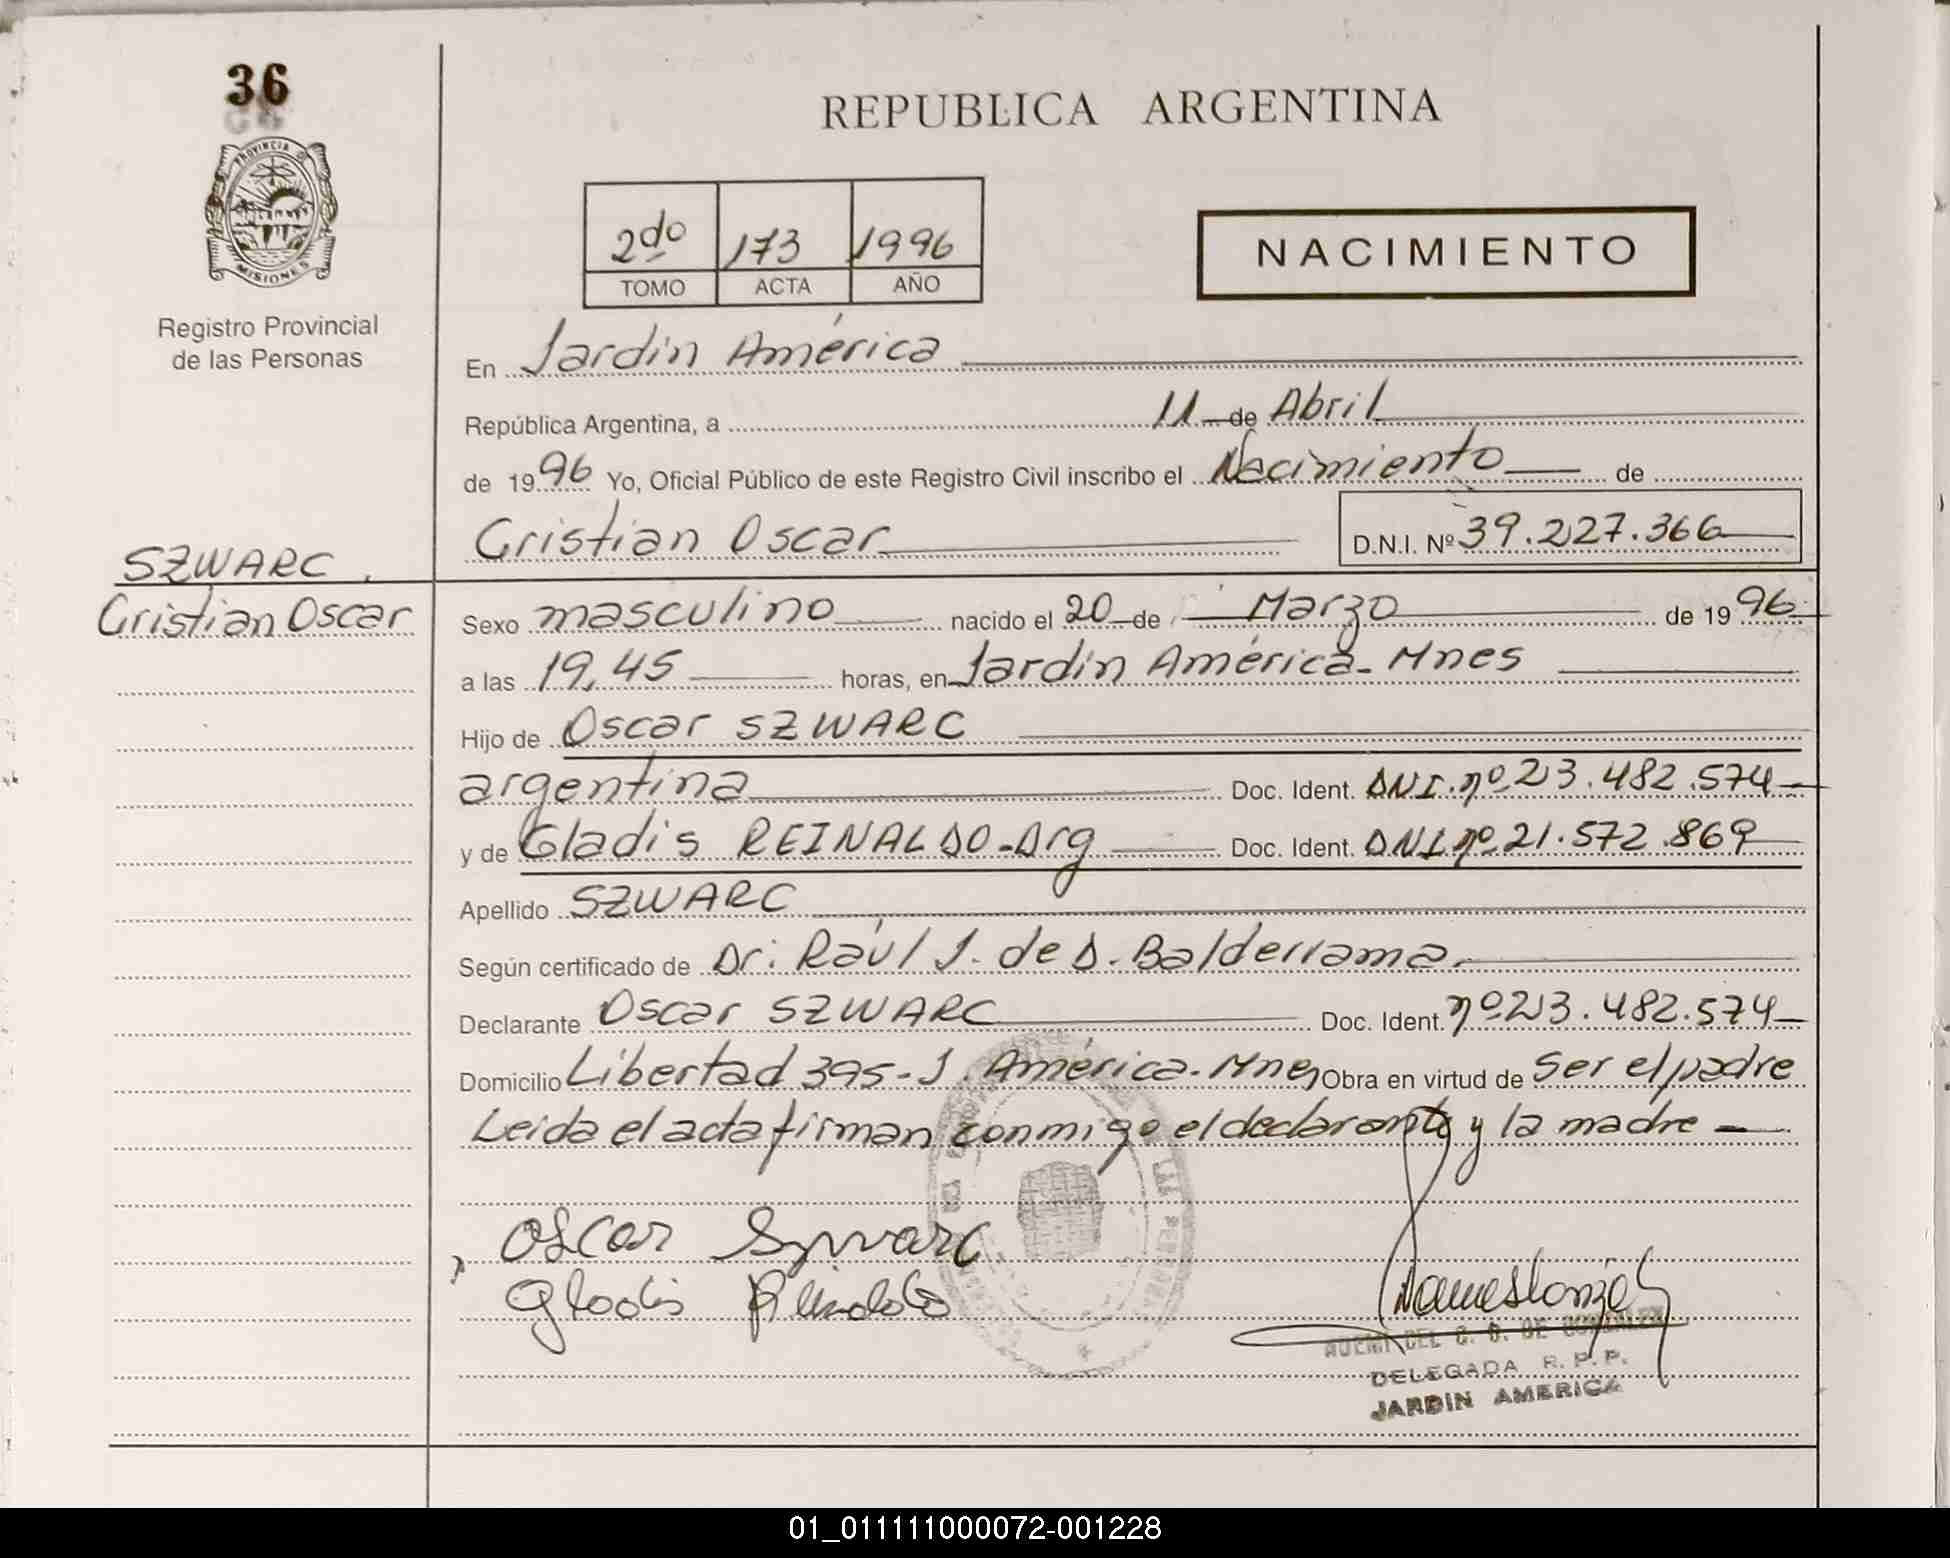 36
PROVINCIA DE
MISIONES
Registro Provincial
de las Personas
SZWARC
Cristian Oscar
REPUBLICA ARGENTINA
2do 173 1996
TOMO ACTA AÑO
NACIMIENTO
En Jardín América
República Argentina, a 11 de Abril
de 1996 Yo, Oficial Público de este Registro Civil inscribo el Nacimiento de
Cristian Oscar D.N.I. Nº 39.227.366
Sexo masculino nacido el 20 de Marzo de 1996
a las 19,45 horas, en Jardín América - Mnes
Hijo de Oscar SZWARC
argentina Doc. Ident. DNI. nº 23.482.574
y de Gladis REINALDO - Arg Doc. Ident. DNI nº 21.572.869
Apellido SZWARC
Según certificado de Dr. Raúl J. de D. Balderrama.
Declarante Oscar SZWARC Doc. Ident. nº 23.482.574
Domicilio Libertad 395 - J. América - Mnes Obra en virtud de Ser el padre
Leida el acta firman conmigo el declarante y la madre
Oscar Szwarc
Gladis Reinaldo
DEL C. B. DE GONZALEZ
DELEGADA R. P. P.
JARDIN AMERICA
01_011111000072-001228